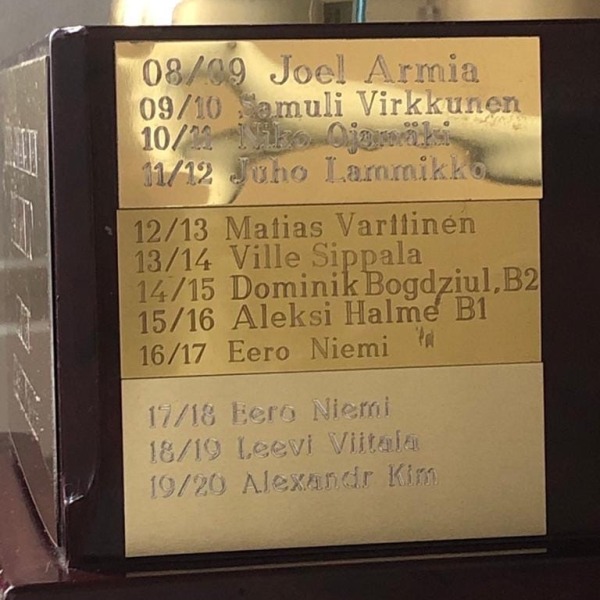 08/09 Joel Armia
09/10 Samuli Virkkunen
10/11 Niko Ojamäki
11/12 Juho Lammikko
12/13 Matias Varttinen
13/14 Ville Sippala
14/15 Dominik Bogdziul,B2
15/16 Aleksi Halme B1
16/17 Eero Niemi
17/18 Eero Niemi
18/19 Leevi Viitala
19/20 Alexandr Kim